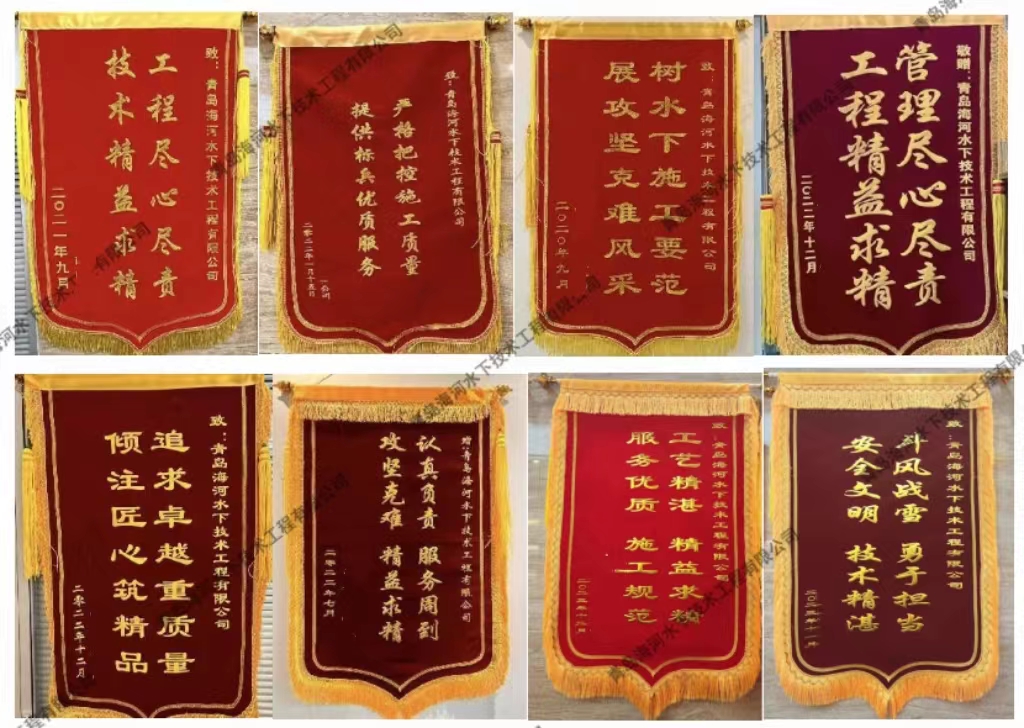 致：青岛海河水下技术工程有限公司
工程尽心尽责
技术精益求精
二〇二一年九月
致：青岛海河水下技术工程有限公司
严格把控施工质量
提供标兵优质服务
二零二二年一月十五日
致：青岛海河水下技术工程有限公司
树水下施工要范
展攻坚克难风采
二〇二〇年九月
敬赠：青岛海河水下技术工程有限公司
管理尽心尽责
工程精益求精
二〇二二年十二月
致：青岛海河水下技术工程有限公司
追求卓越重质量
倾注匠心筑精品
二零二二年十二月
赠：青岛海河水下技术工程有限公司
认真负责 服务周到
攻坚克难 精益求精
二零二二年七月
致：青岛海河水下技术工程有限公司
工艺精湛 精益求精
服务优质 施工规范
致：青岛海河水下技术工程有限公司
斗风战雪 勇于担当
安全文明 技术精湛
二〇二三年十一月